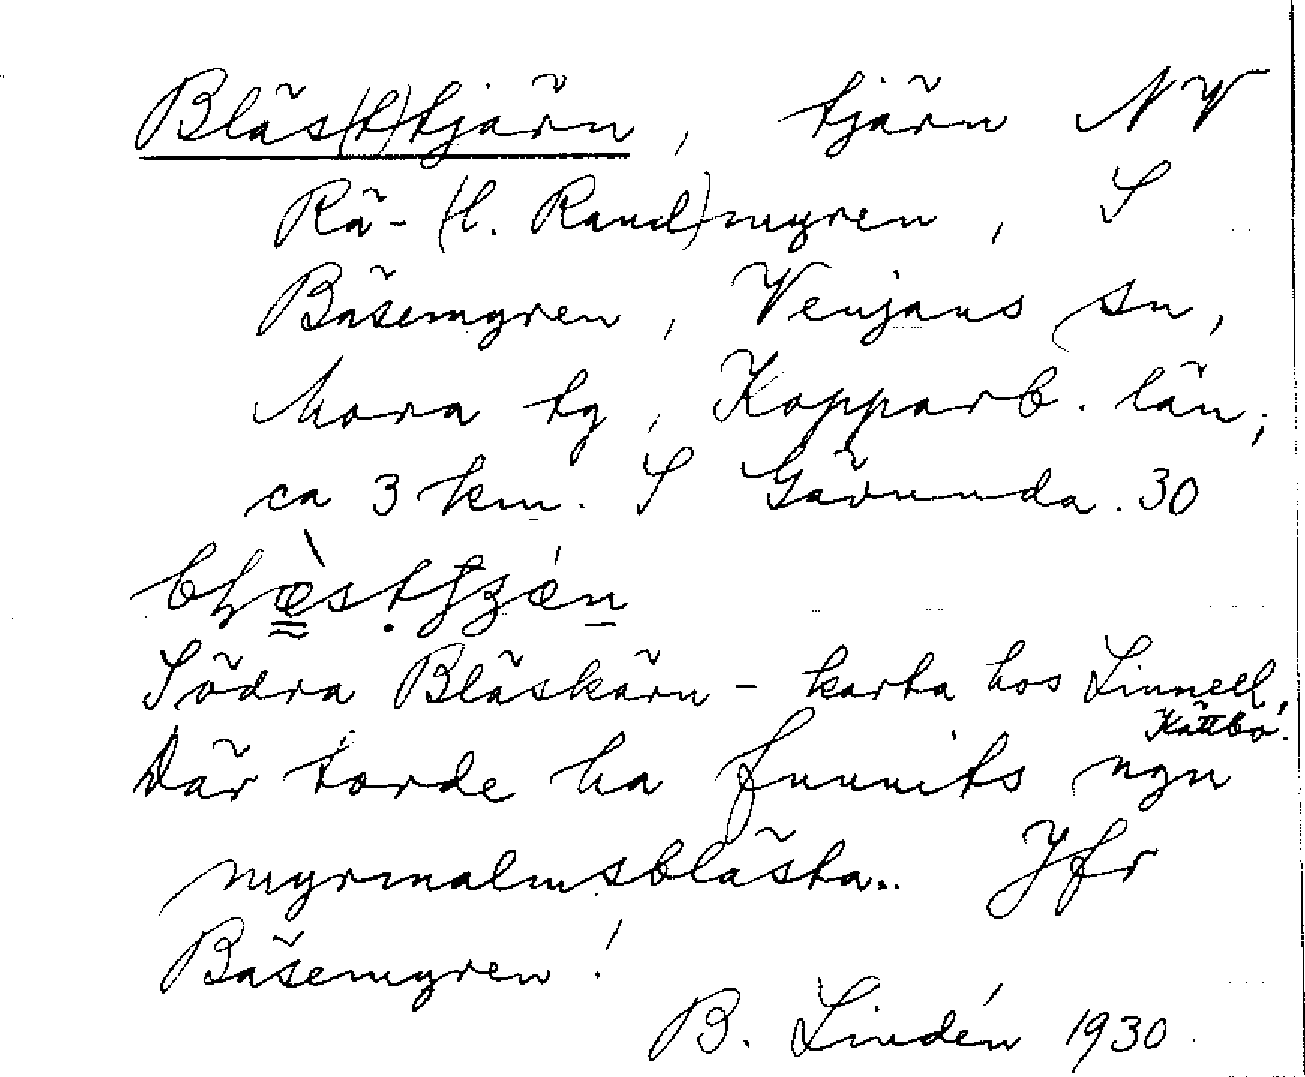 Bläs(t)tjärn, tjärn NV
Rå- (l. Rand)myren, S
Båsemyren, Venjans sn,
Mora tg, Kopparb. län;
ca 3 km. S Gävunda. 30
Södra Bläskärn - karta hos Linnell,
Kättbo.
Där torde ha funnits ngn
myrmalmsblästa.. Jfr
Båsemyren!
B. Lindén 1930.